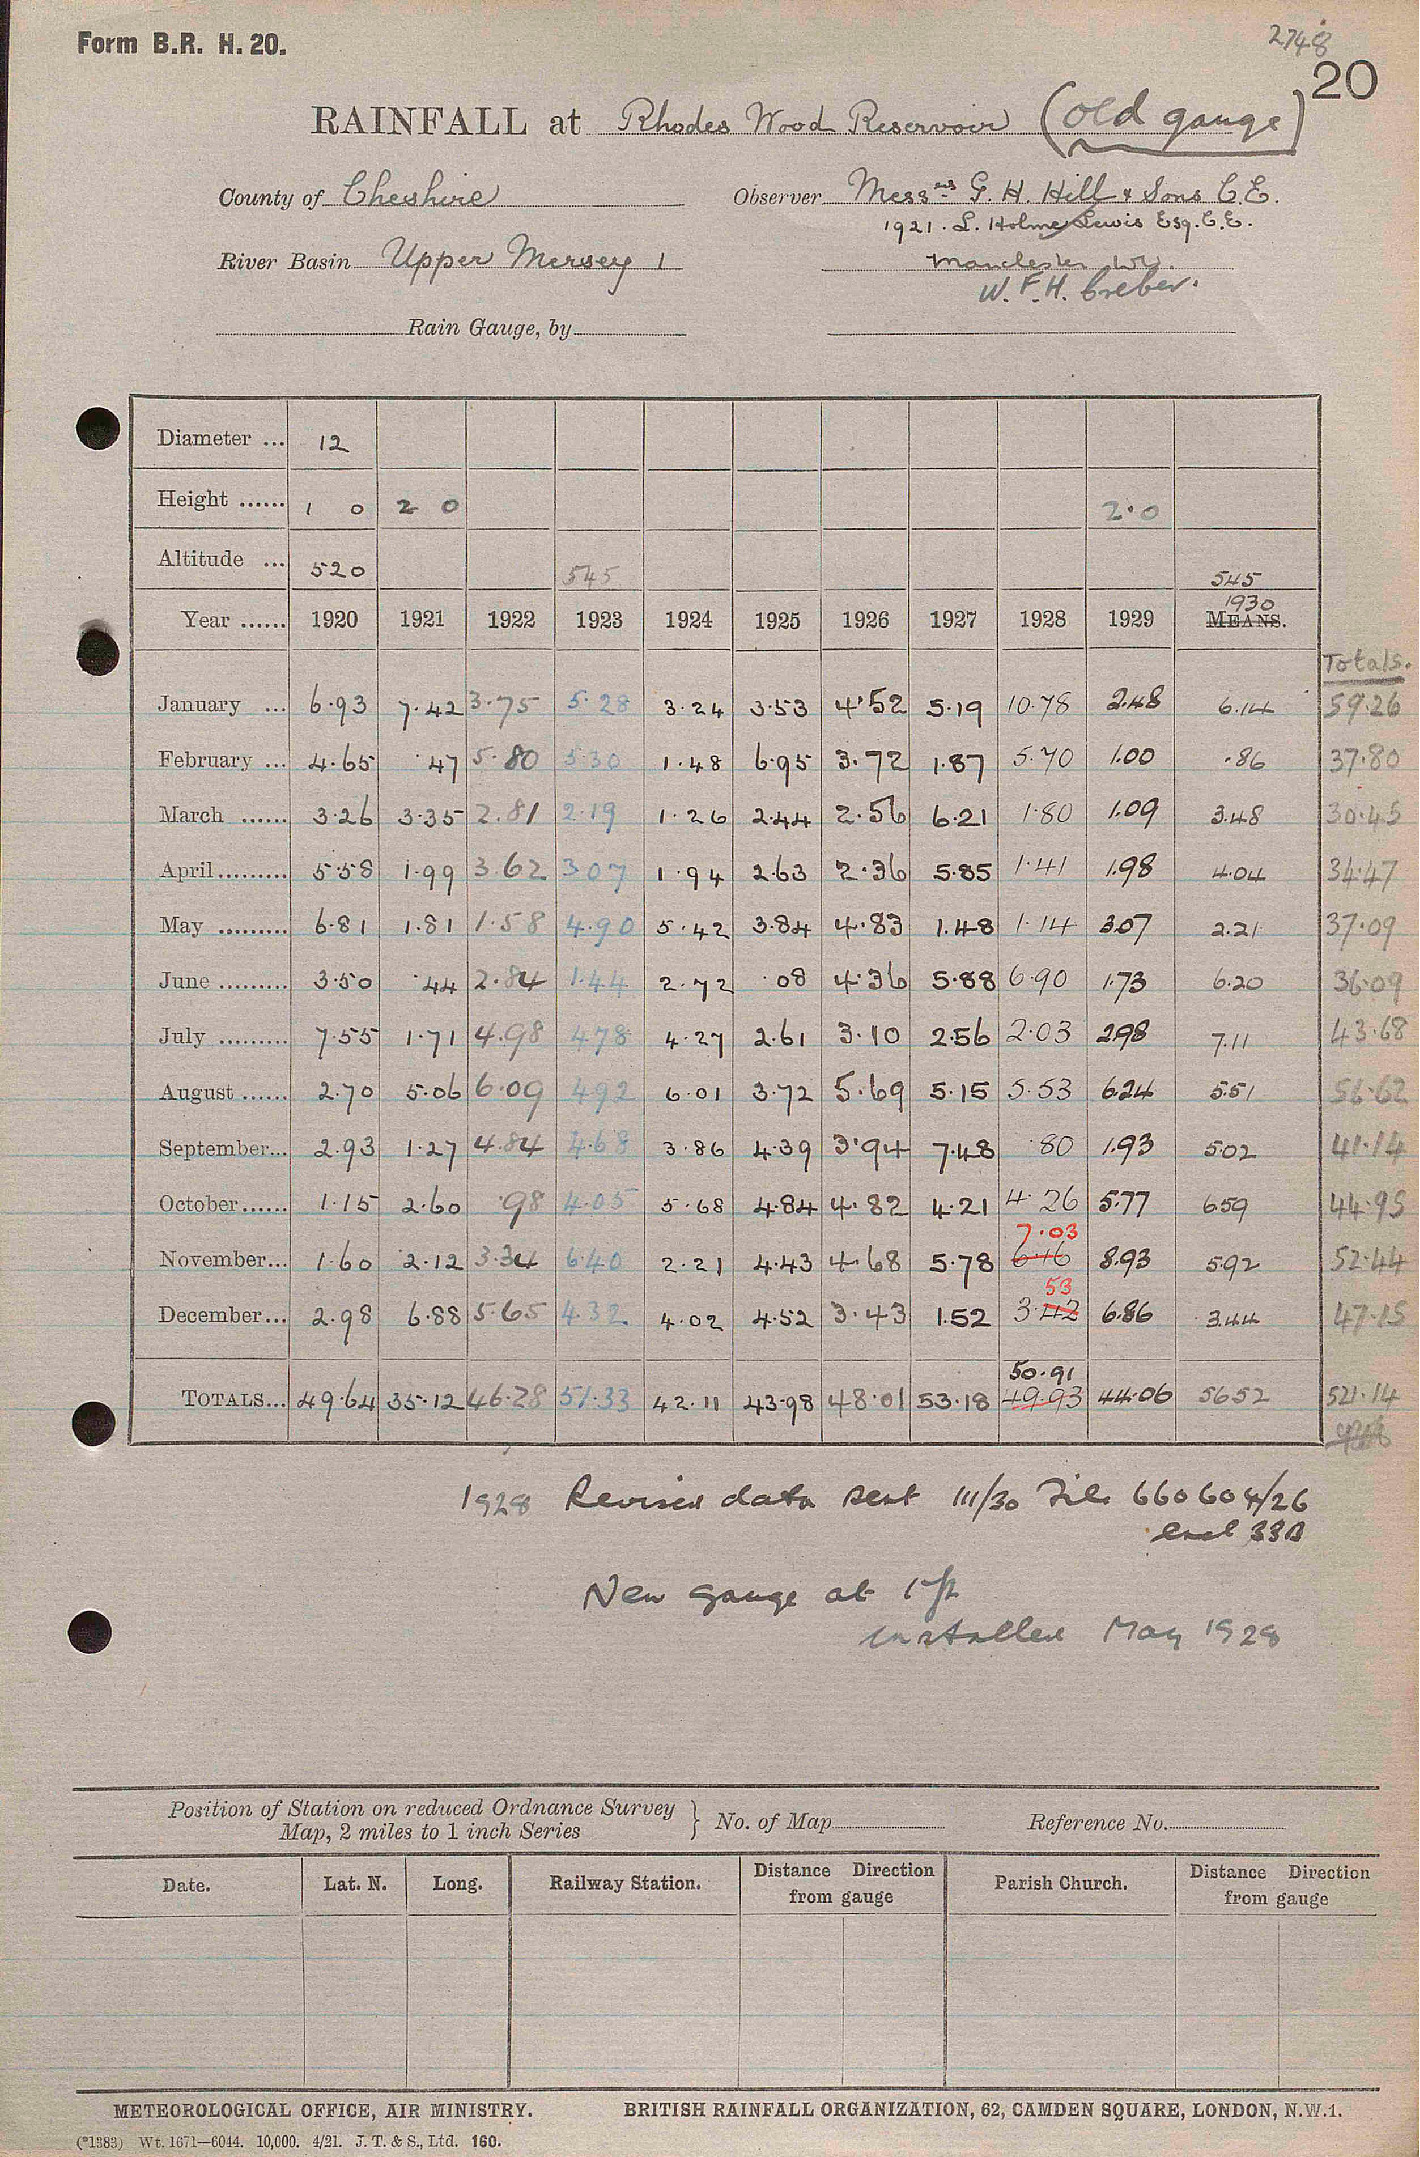 Form B.R. H. 20.
2748
20
RAINFALL at Rhodes Wood Reservoir (old gauge)
County of Cheshire Observer Messrs G. H. Hill & Sons C.E.
1921. L. Holme Lewis Esq. C.E.
River Basin Upper Mersey 1 Manchester WW.
W. F. H. Creber.
Rain Gauge, by
Diameter ... 12
Height ...... 1 0 2 0 2.0
Altitude ... 520 545 545
1930
Year ...... 1920 1921 1922 1923 1924 1925 1926 1927 1928 1929 MEANS.
Totals.
January ... 6.93 7.42 3.75 5.28 3.24 3.53 4.52 5.19 10.78 2.48 6.14 59.26
February ... 4.65 .47 5.80 5.30 1.48 6.95 3.72 1.87 5.70 1.00 .86 37.80
March ...... 3.26 3.35 2.81 2.19 1.26 2.44 2.56 6.21 1.80 1.09 3.48 30.45
April......... 5.58 1.99 3.62 3.07 1.94 2.63 2.36 5.85 1.41 1.98 4.04 34.47
May ......... 6.81 1.81 1.58 4.90 5.42 3.84 4.83 1.48 1.14 3.07 2.21 37.09
June ......... 3.50 .44 2.84 1.44 2.72 .08 4.36 5.88 6.90 1.73 6.20 36.09
July ......... 7.55 1.71 4.98 4.78 4.27 2.61 3.10 2.56 2.03 2.98 7.11 43.68
August ...... 2.70 5.06 6.09 4.92 6.01 3.72 5.69 5.15 5.53 6.24 5.51 56.62
September... 2.93 1.27 4.84 4.68 3.86 4.39 3.94 7.48 .80 1.93 5.02 41.14
October...... 1.15 2.60 .98 4.05 5.68 4.84 4.82 4.21 4.26 5.77 6.59 44.95
7.03
November... 1.60 2.12 3.34 6.40 2.21 4.43 4.68 5.78 6.16 8.93 5.92 52.44
53
December... 2.98 6.88 5.65 4.32 4.02 4.52 3.43 1.52 3.42 6.86 3.44 47.15
50.91
TOTALS... 49.64 35.12 46.28 51.33 42.11 43.98 48.01 53.18 49.93 44.06 56.52 521.14
1928 Revised data sent 111/30 File 660604/26
encl 33B
New gauge at 1 ft
installed May 1928
Position of Station on reduced Ordnance Survey
Map, 2 miles to 1 inch Series } No. of Map Reference No.
Date. Lat. N. Long. Railway Station. Distance Direction from gauge Parish Church. Distance Direction from gauge
METEOROLOGICAL OFFICE, AIR MINISTRY. BRITISH RAINFALL ORGANIZATION, 62, CAMDEN SQUARE, LONDON, N.W.1.
(*1383) Wt. 1671—6044. 10,000. 4/21. J. T. & S., Ltd. 160.